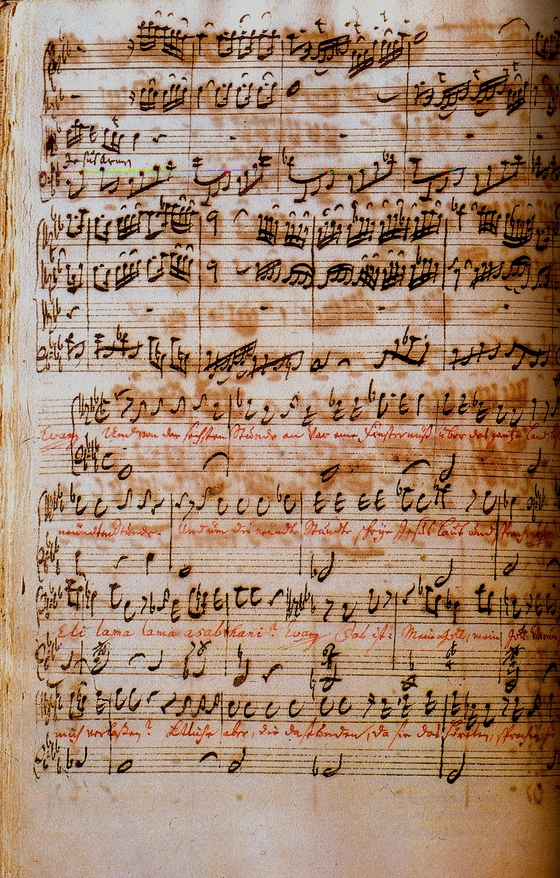 Jesus Armen
Evang. Und von der sechsten Stunde an war eine Finsternuß über das gantze Land
neundten Stunde. Und um die neundte Stunde schrye Jesus laut und sprach
Eli lama lama asabthani? Evang. Das ist: Mein Gott, mein Gott
mich verlaßen? Etliche aber, die da stunden, da sie das höreten, sprachen